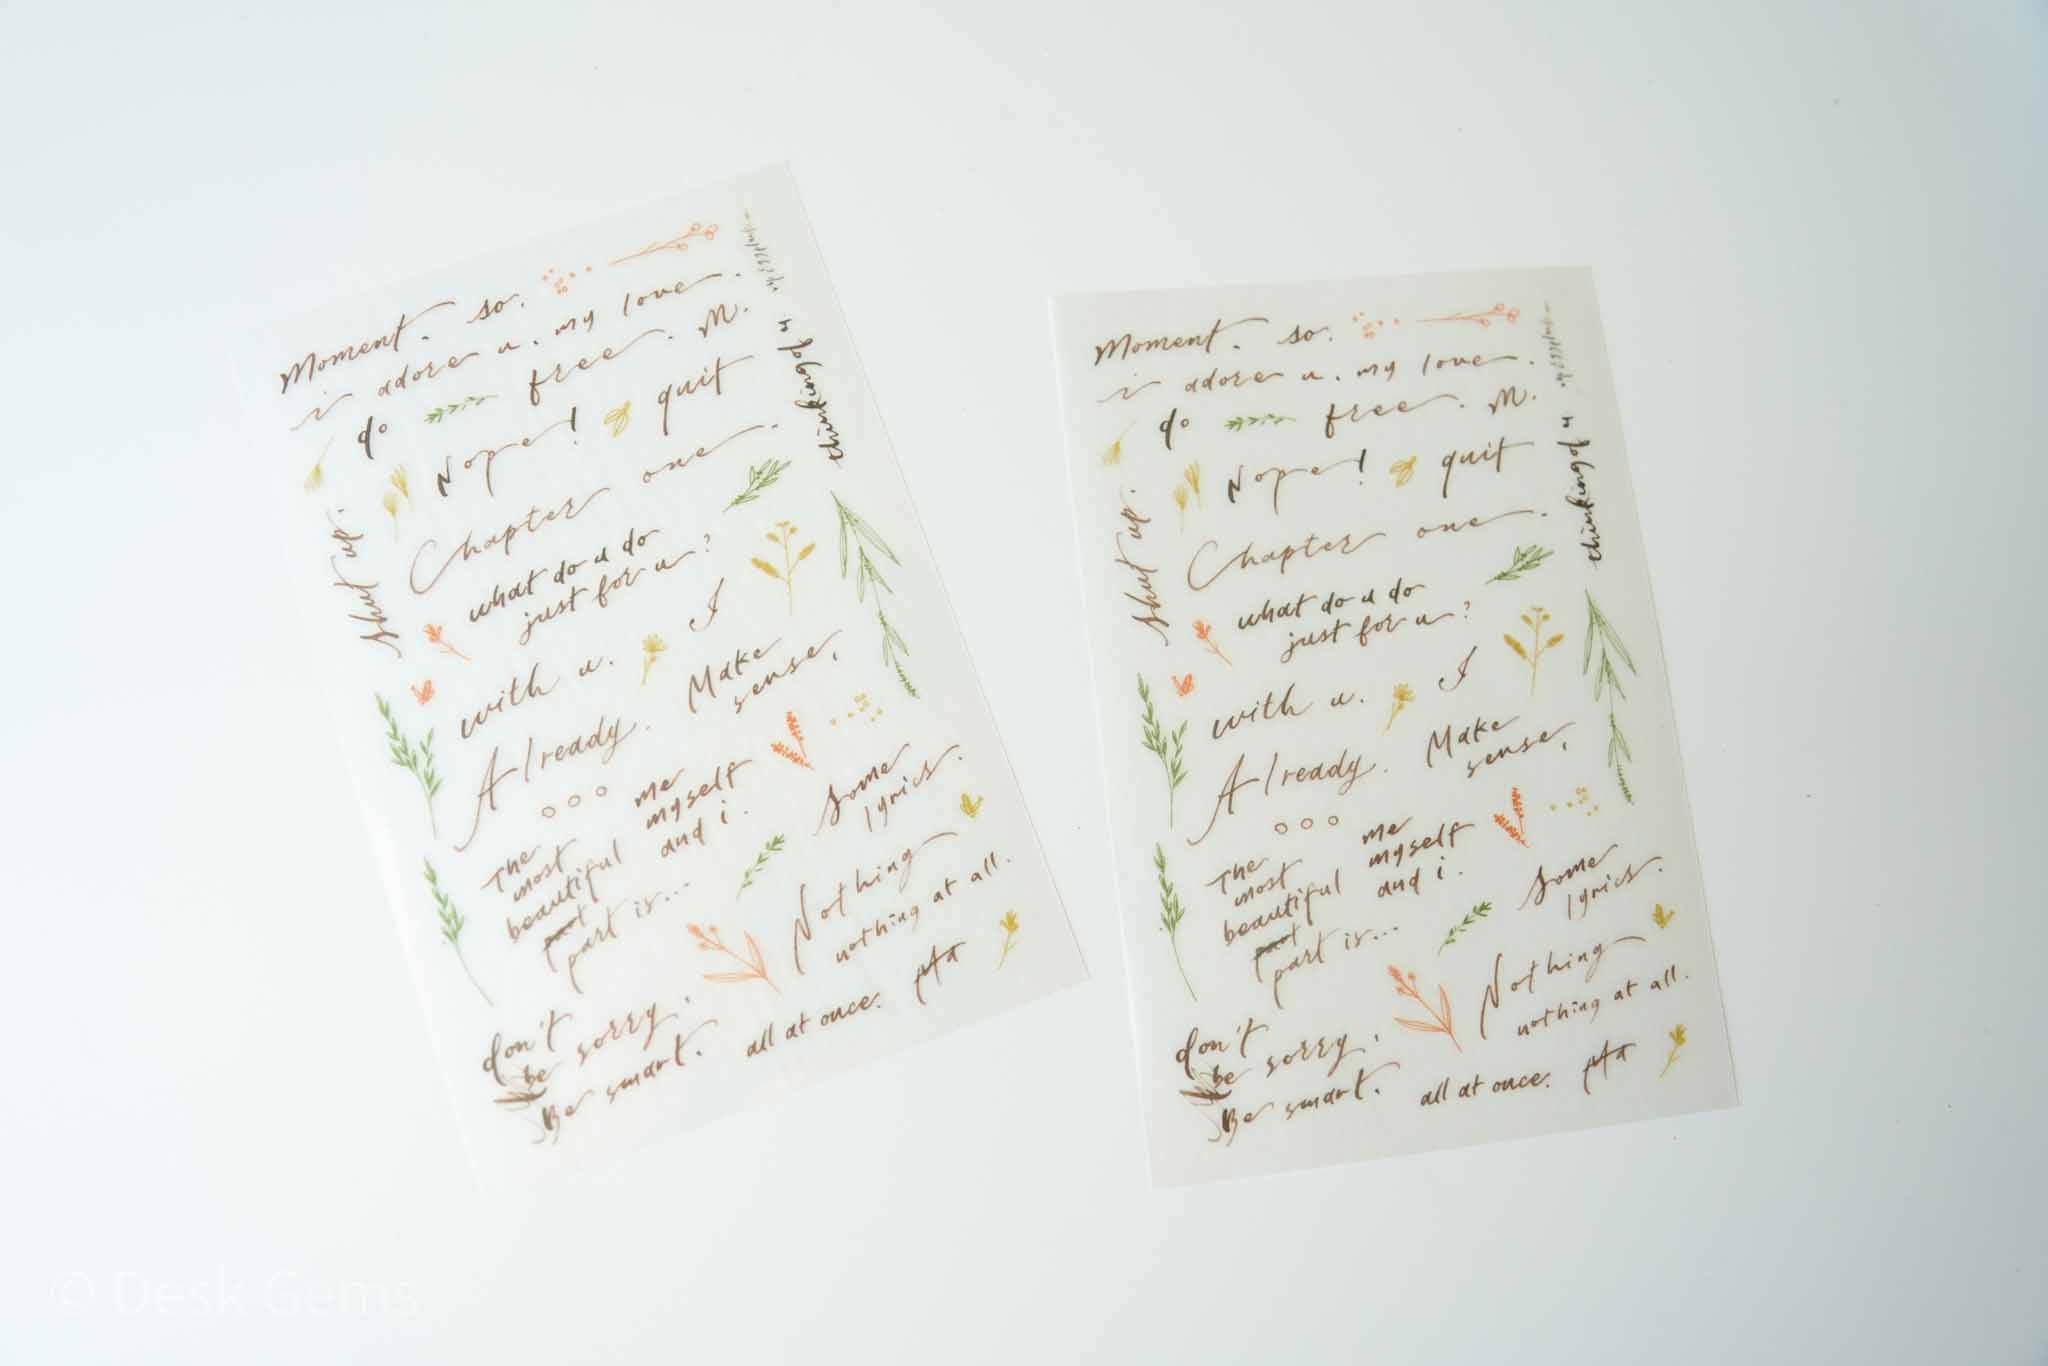 Moment. so.
i adore u. my love.
do free. M.
Nope! quit
thinking of u
Shut up.
Chapter one.
what do u do
just for u?
with u. I
Make
sense,
Already.
me
myself
and i.
The
most
beautiful
part
part is...
Some
lyrics.
Nothing
nothing at all.
don't
be sorry,
Be smart.
all at once.
Moment. so.
i adore u. my love.
do free. M.
Nope! quit
thinking of u
Shut up.
Chapter one.
what do u do
just for u?
with u. I
Make
sense,
Already.
me
myself
and i.
The
most
beautiful
part
part is...
Some
lyrics.
Nothing
nothing at all.
don't
be sorry,
Be smart.
all at once.
© Desk Gems